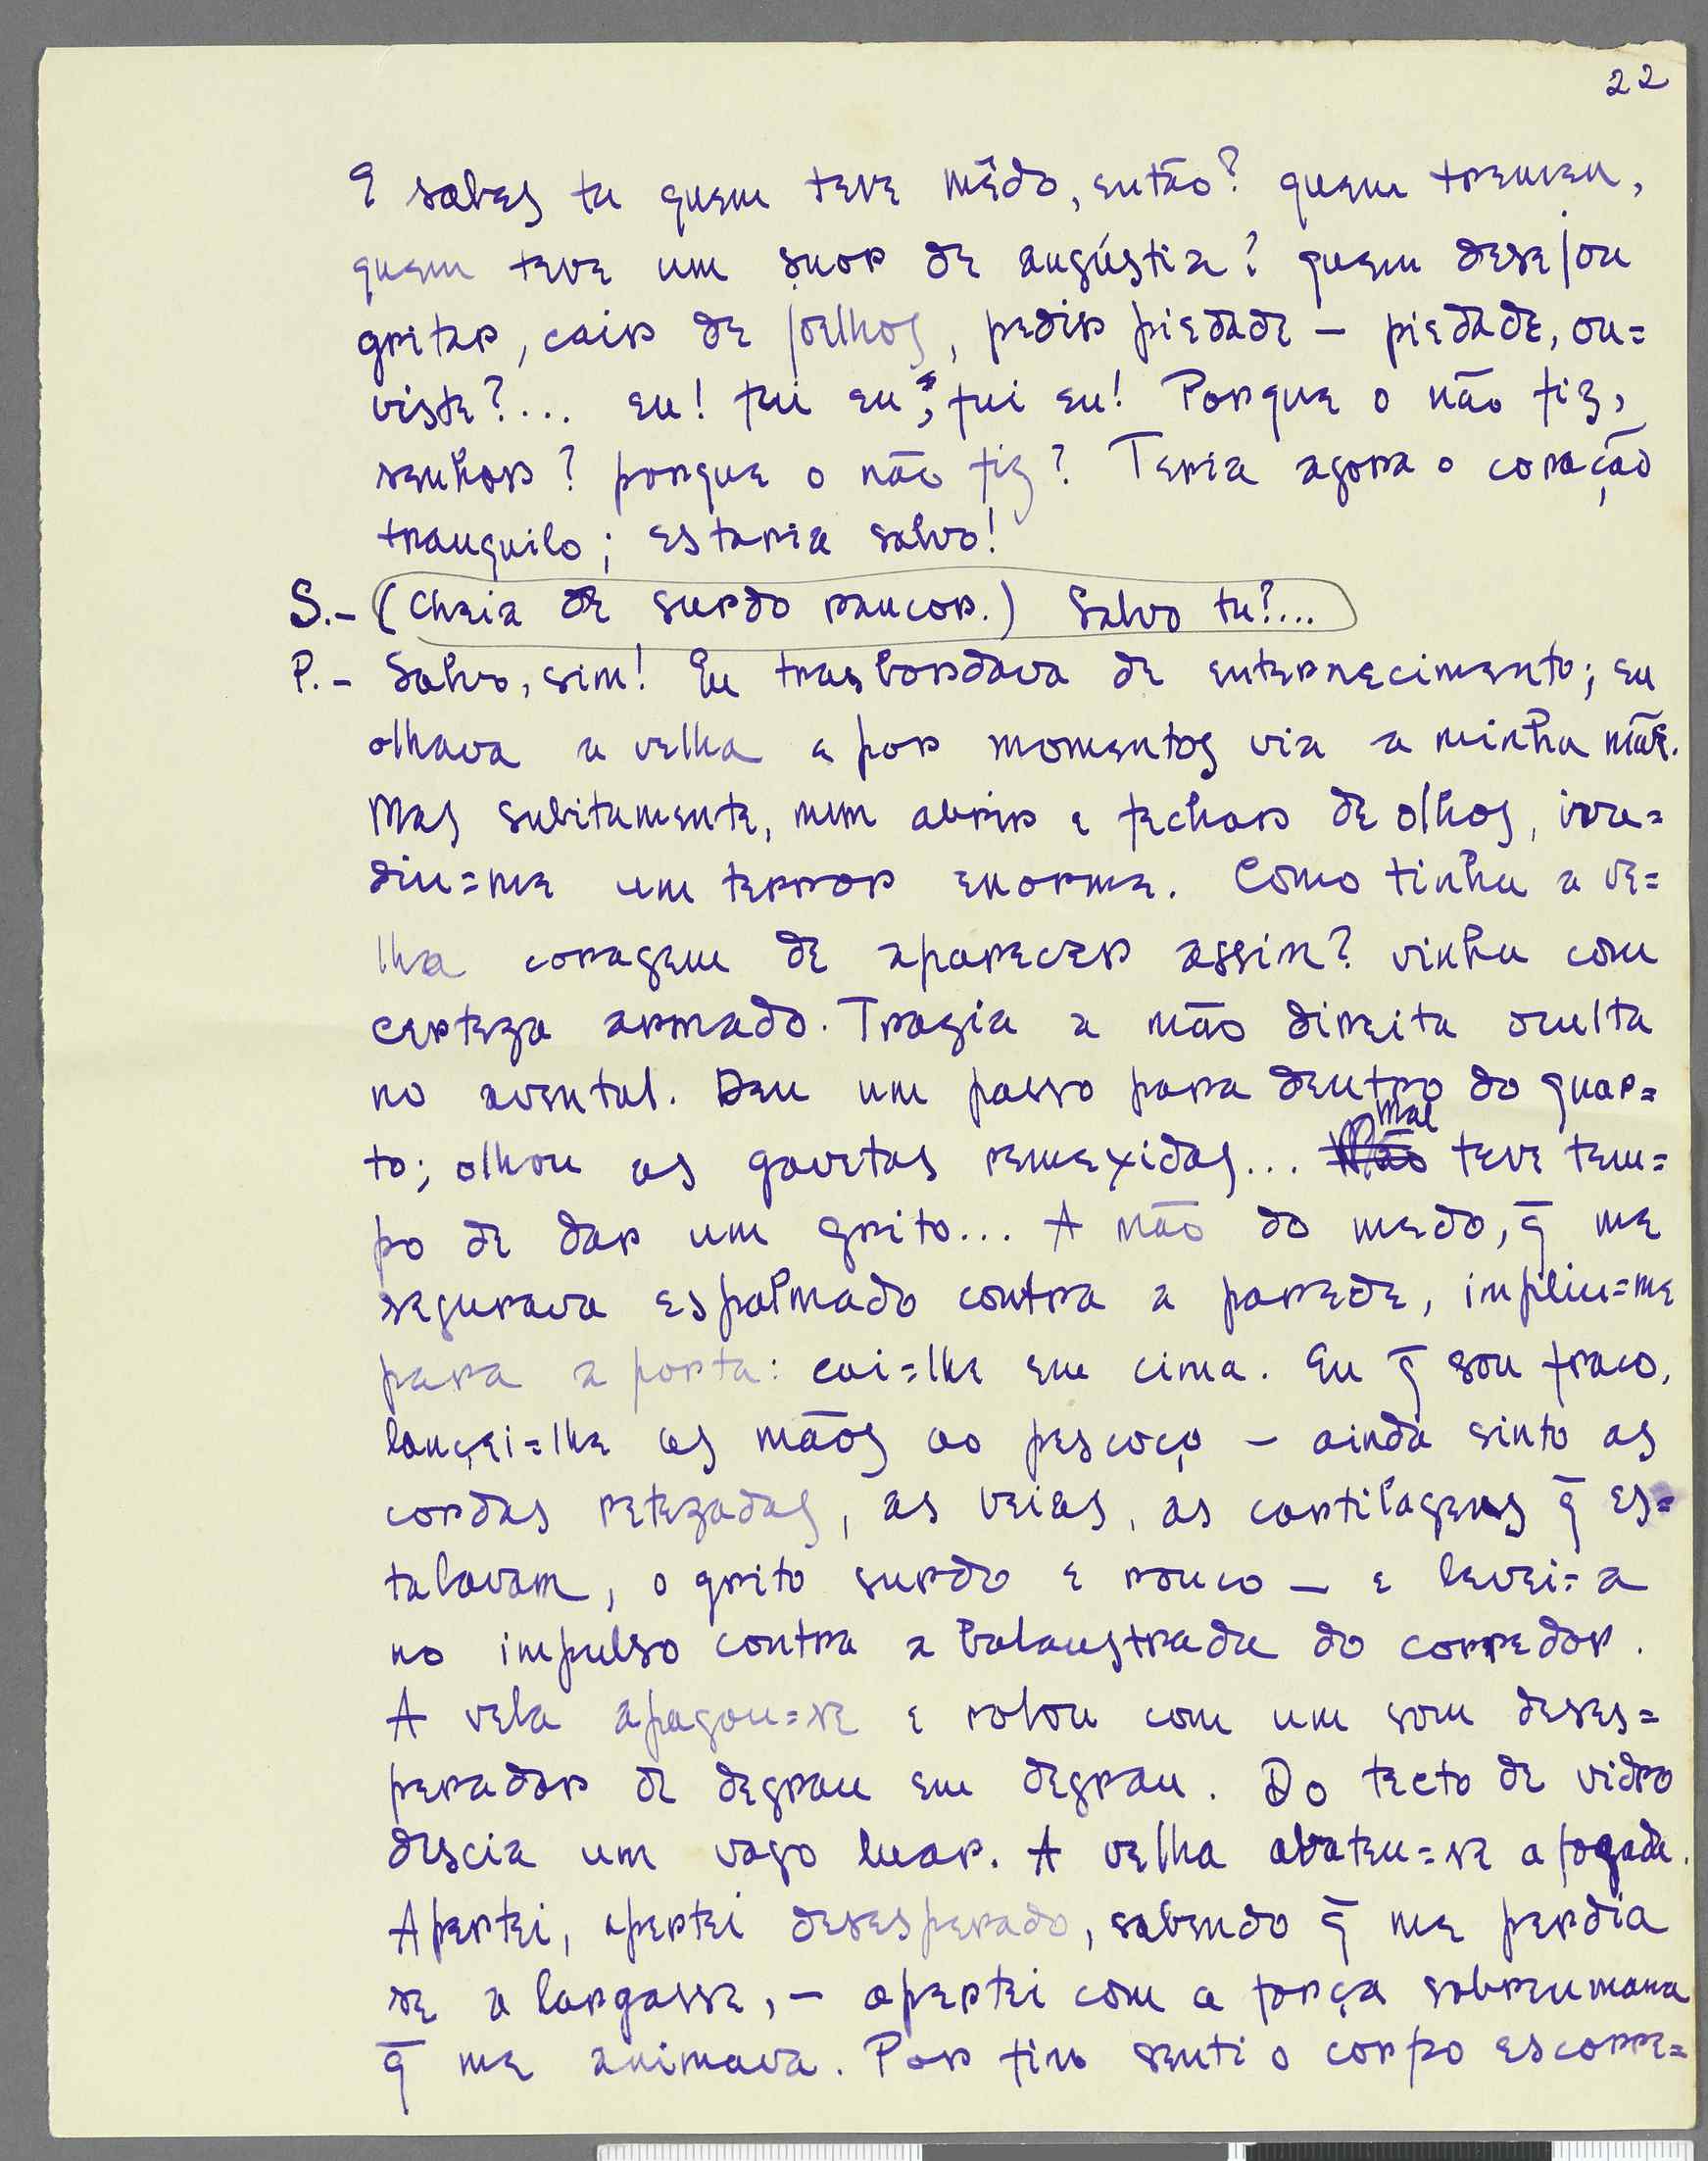 22
E sabes tu quem teve mêdo, então? quem tremeu,
quem teve um suor de angústia? quem desejou
gritar, cair de joelhos, pedir piedade — piedade, ou=
viste?... eu! fui eu, fui eu! Porque o não fiz,
senhor? porque o não fiz? Teria agora o coração
tranquilo; estaria salvo!
S.- (Cheia de surdo rancor.) Salvo tu?...
P.- Salvo, sim! Eu trasbordava de enternecimento; eu
olhava a velha e por momentos via a minha mãe.
Mas subitamente, num abrir e fechar de olhos, inva=
diu=me um terror enorme. Como tinha a ve=
lha coragem de aparecer assim? vinha com
certeza armado. Trazia a mão direita oculta
no avental. Deu um passo para dentro do quar=
to; olhou as gavetas remexidas... Mal teve tem=
po de dar um grito... A mão do medo, q̄ me
segurava espalmado contra a parede, impeliu=me
para a porta: caí=lhe em cima. Eu q̄ sou fraco,
lancei=lhe as mãos ao pescoço — ainda sinto as
cordas retezadas, as veias, as cartilagens q̄ es=
talavam, o grito surdo e rouco — e levei=a
no impulso contra a balaustrada do corredor.
A vela apagou=se e rolou com um som deses=
perador de degrau em degrau. Do tecto de vidro
descia um vago luar. A velha abateu=se afogada.
Apertei, apertei desesperado, sabendo q̄ me perdia
se a largasse, — apertei com a força sobreumana
q̄ me animava. Por fim senti o corpo escorre=